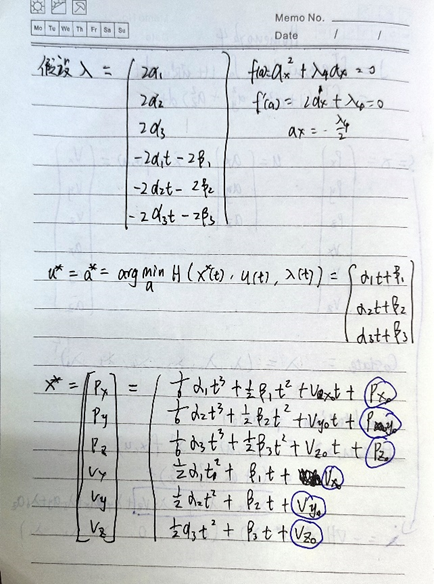 Memo No.
Mo Tu We Th Fr Sa Su
Date / /
假设 λ = [2α₁
2α₂
2α₃
-2α₁t - 2β₁
-2α₂t - 2β₂
-2α₃t - 2β₃]
f(a) = aₓ² + λ₄aₓ = 0
f'(a) = 2aₓ + λ₄ = 0
aₓ = -λ₄/2
u* = a* = arg min_a H(x*(t), u(t), λ(t)) = [α₁t+β₁
α₂t+β₂
α₃t+β₃]
x* = [Px = 1/6 α₁t³ + 1/2 β₁t² + Vx₀t + Px₀
Py 1/6 α₂t³ + 1/2 β₂t² + Vy₀t + Py₀
Pz 1/6 α₃t³ + 1/2 β₃t² + Vz₀t + Pz₀
Vx 1/2 α₁t² + β₁t + Vx₀
Vy 1/2 α₂t² + β₂t + Vy₀
Vz] 1/2 α₃t² + β₃t + Vz₀